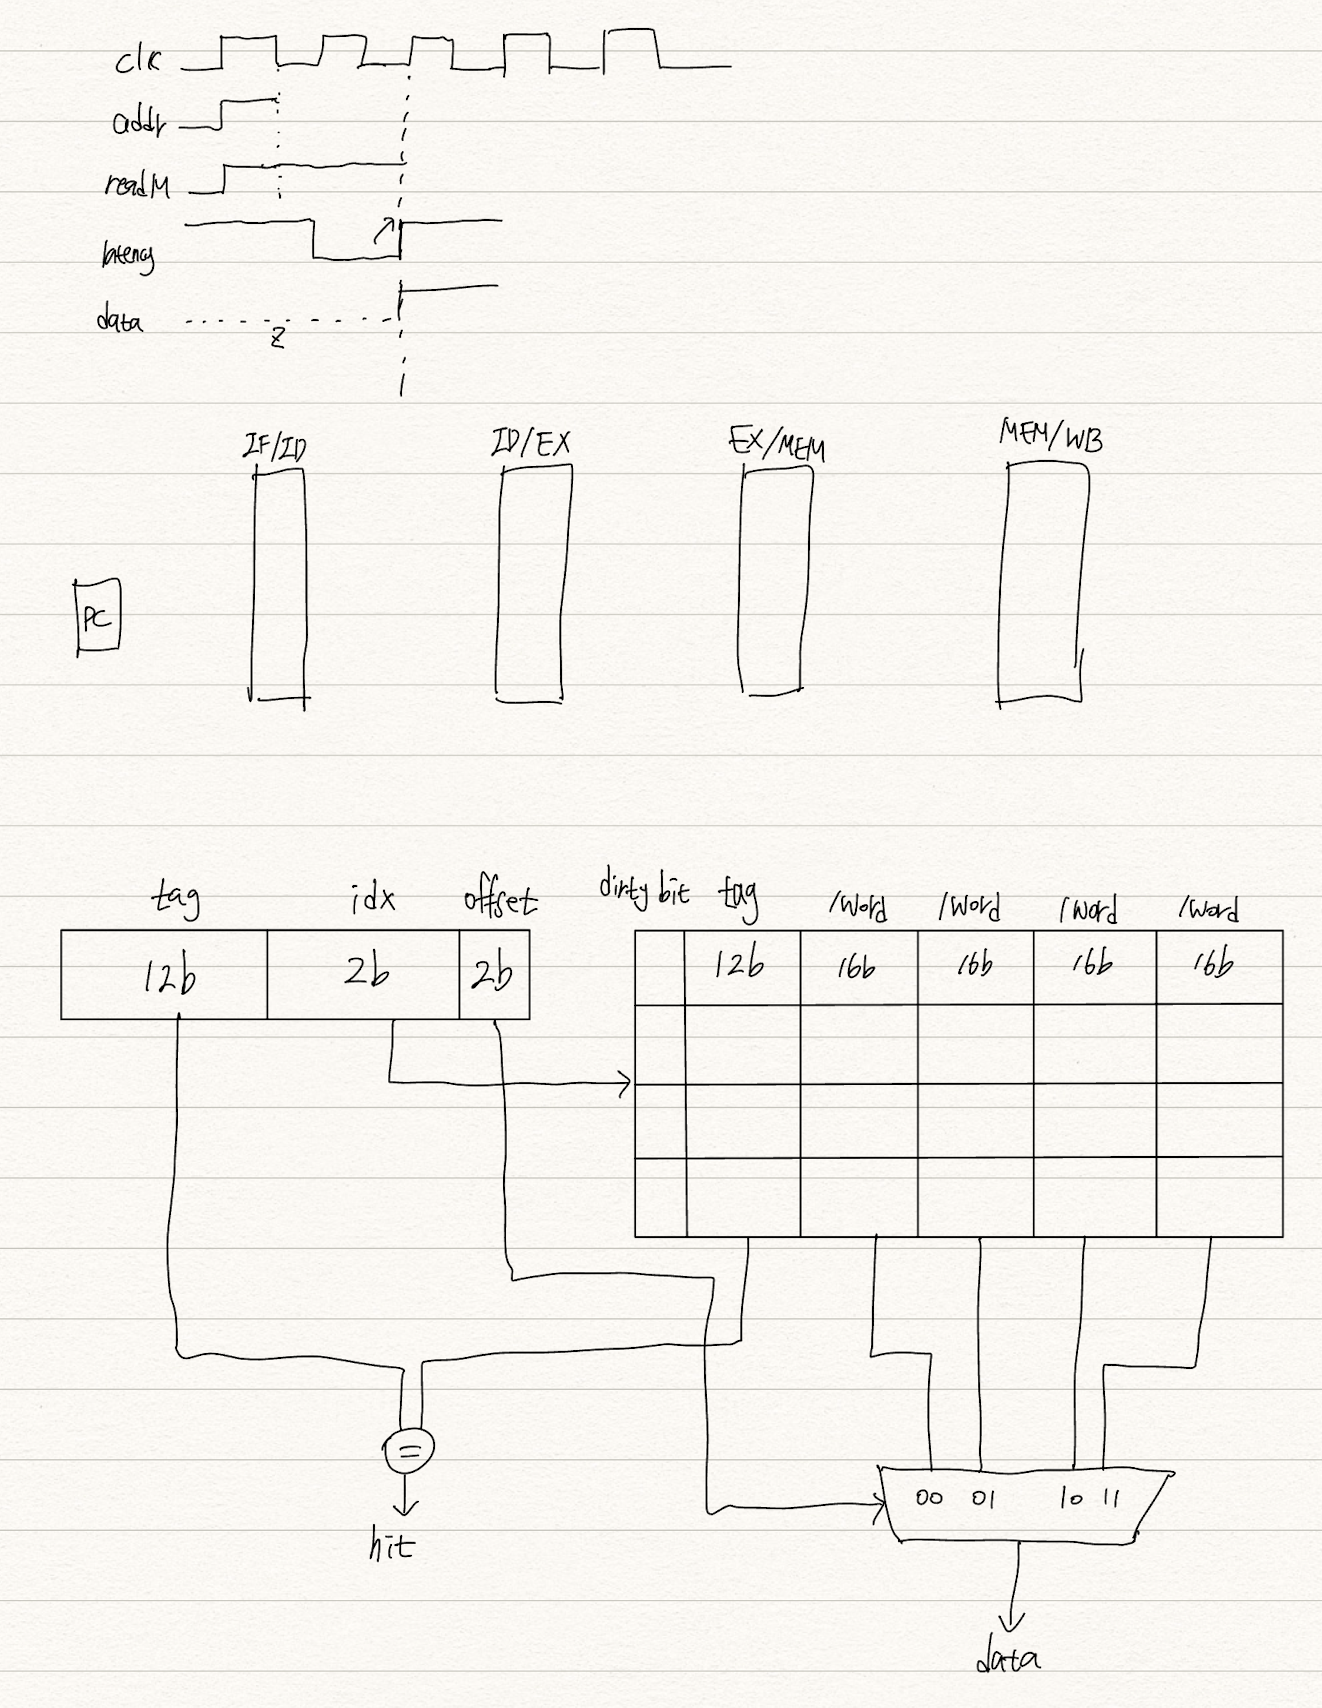 clk
addr
readM
latency
data
Z
IF/ID ID/EX EX/MEM MEM/WB
PC
tag idx offset dirty bit tag 1word 1word 1word 1word
12b 2b 2b 12b 16b 16b 16b 16b
=
00 01 10 11
hit
data